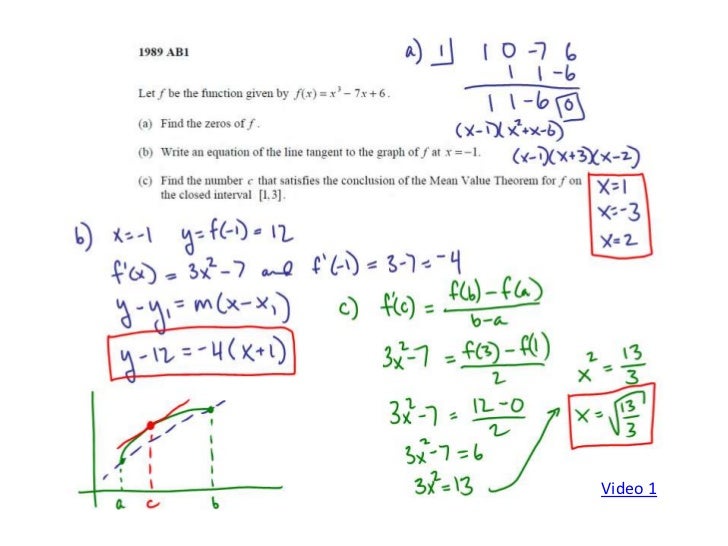 1989 AB1
Let f be the function given by f(x) = x³ – 7x + 6.
(a) Find the zeros of f.
(b) Write an equation of the line tangent to the graph of f at x = –1.
(c) Find the number c that satisfies the conclusion of the Mean Value Theorem for f on
the closed interval [1,3].
a) 1| 1 0 -7 6
1 1 -6
1 1 -6 0
(x-1)(x²+x-6)
(x-1)(x+3)(x-2)
x=1
x=-3
x=2
b) x=-1 y=f(-1)=12
f'(x) = 3x²-7 and f'(-1) = 3-7=-4
y-y₁=m(x-x₁)
y-12=-4(x+1)
c) f'(c) = f(b)-f(a)
b-a
3x²-7 = f(3)-f(1)
2
3x²-7 = 12-0
2
3x²-7=6
3x²=13
x² = 13
3
x=√13
3
a c b
Video 1